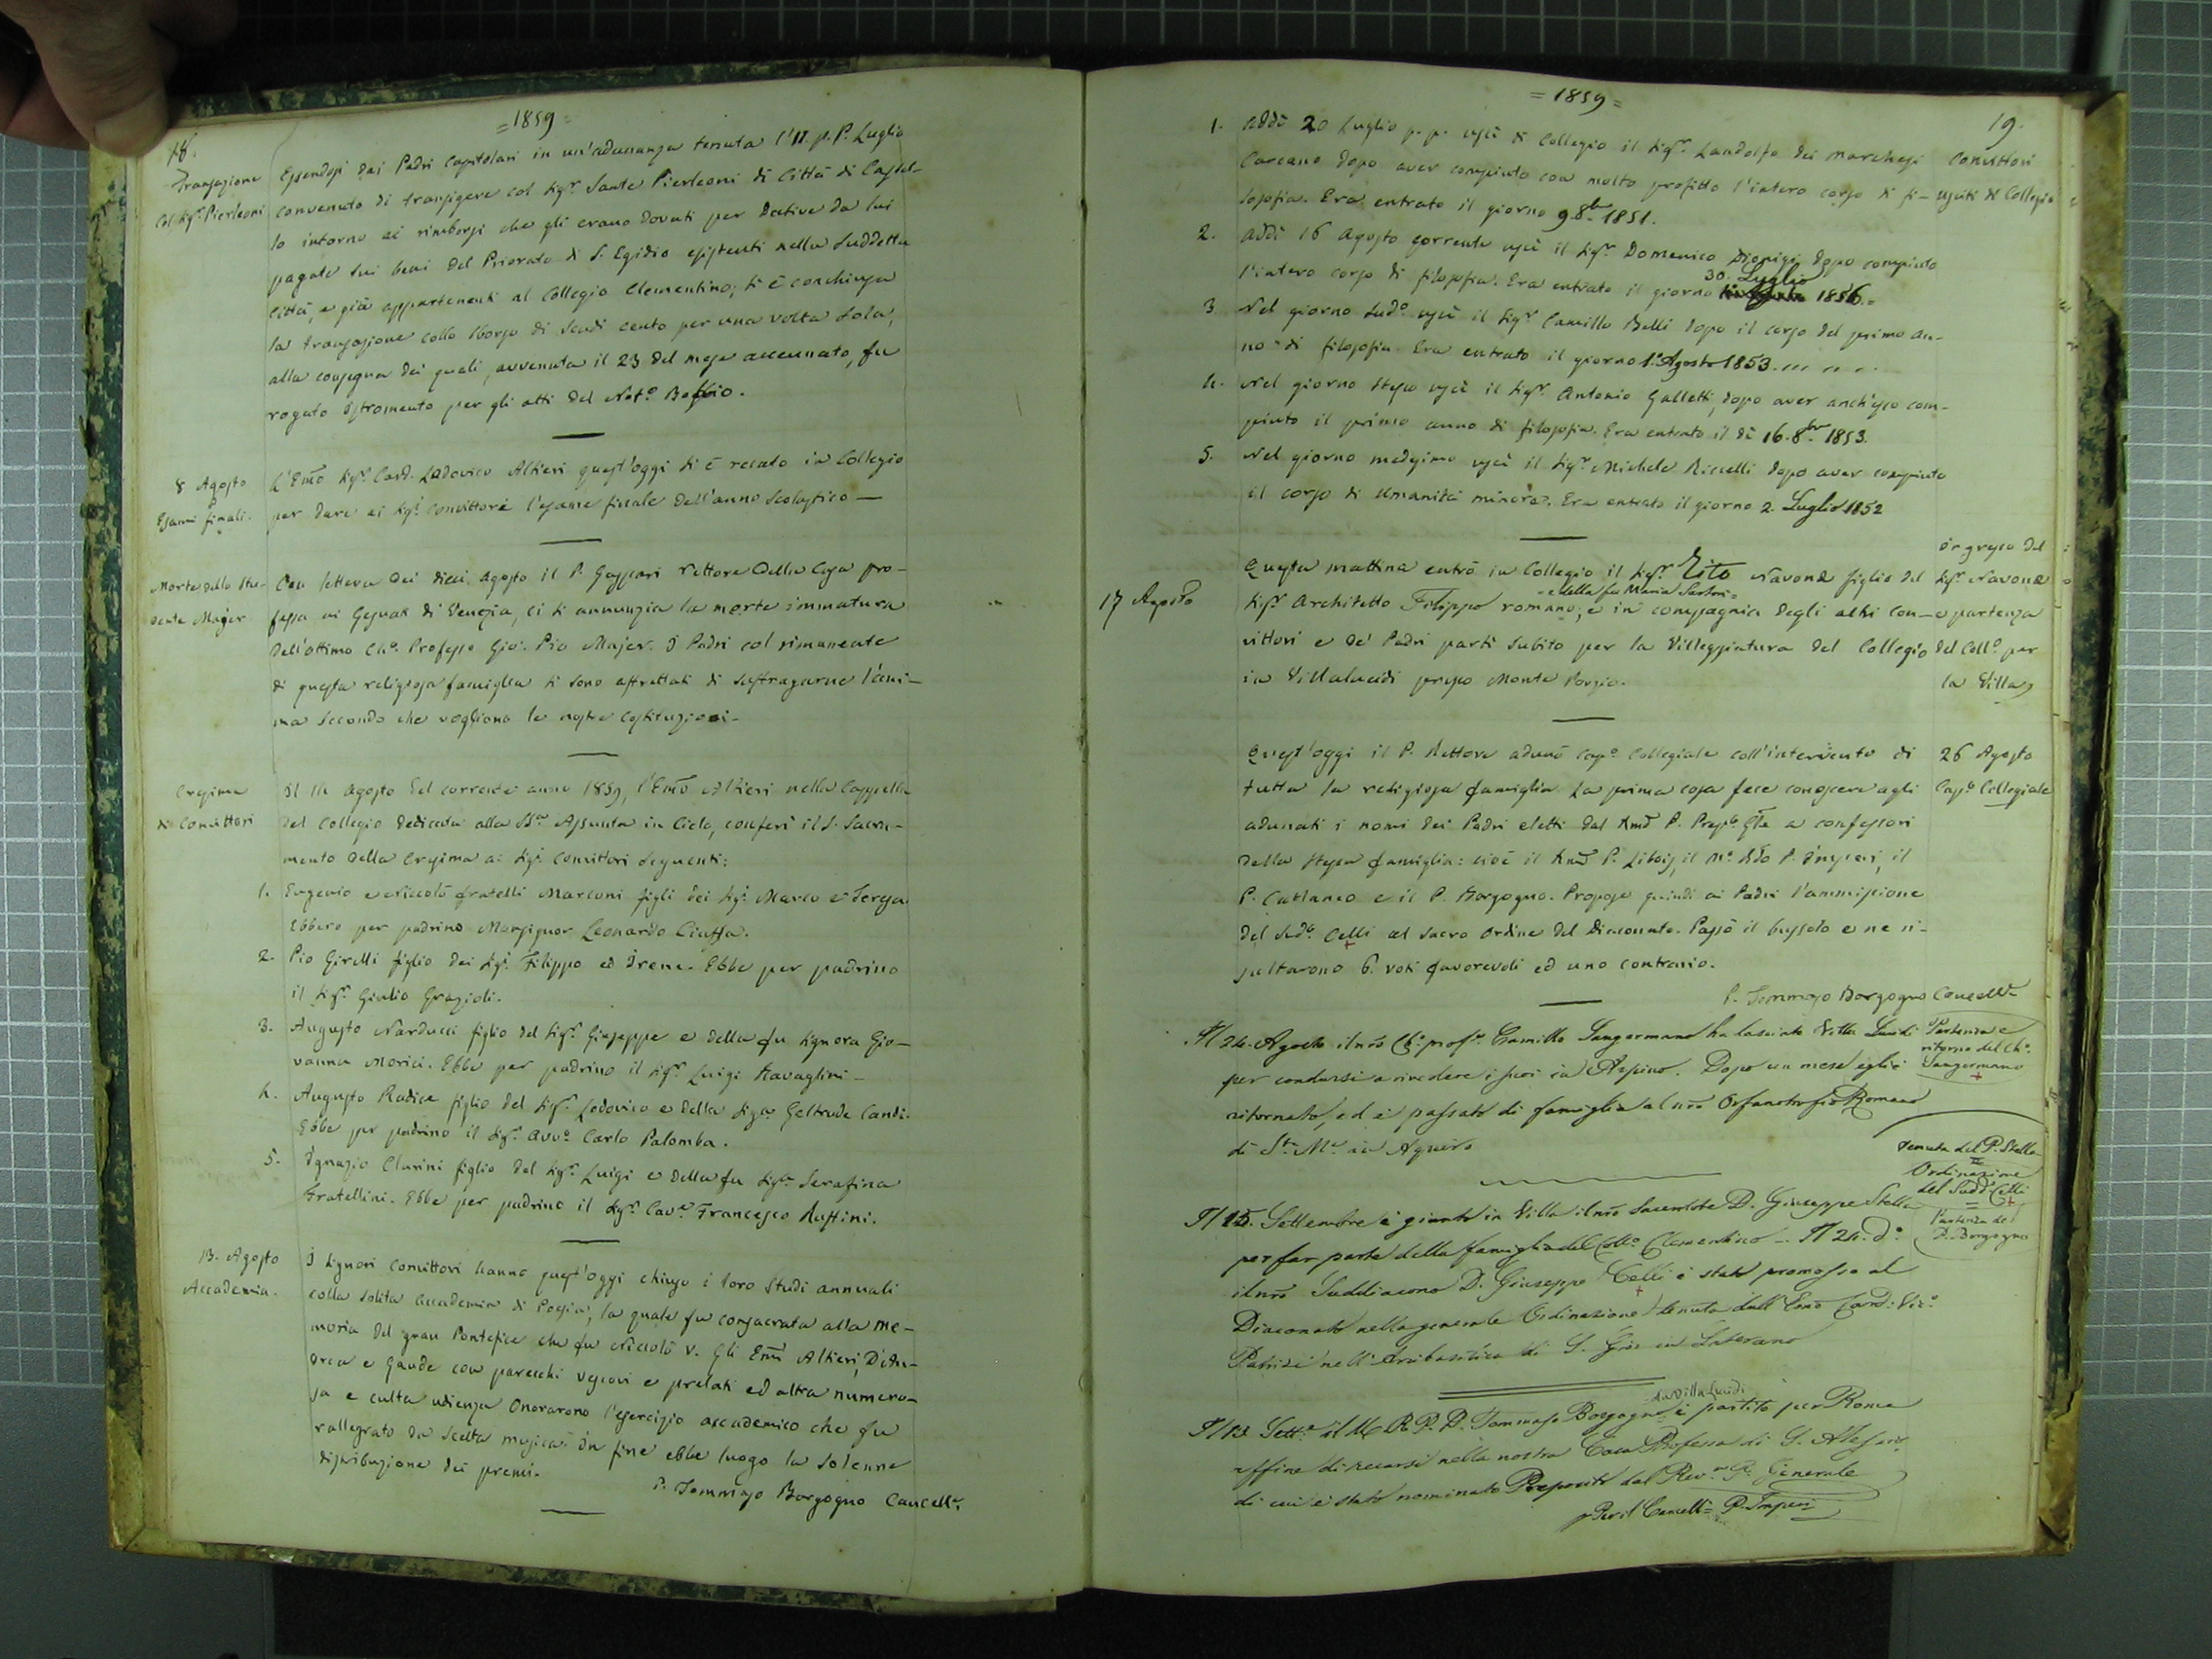 =1859=
18.
Transazione
col Sigr. Pierleoni
Essendosi dai Padri Capitolari in un'adunanza tenuta l'11 p. P. Luglio
convenuto di transigere col Sigr. Sante Pierleoni di Città di Castel-
lo intorno ai rimborsi che gli erano dovuti per Dative da lui
pagate sui beni del Priorato di S. Egidio esistenti nella suddetta
Città, e già appartenenti al Collegio Clementino; si è conchiusa
la transazione collo sborso di Scudi cento per una volta sola,
alla consegna dei quali, avvenuta il 23 del mese accennato, fu
rogato Istromento per gli atti del Noto.
8 Agosto
Esami finali.
L'Emo Sigr. Card. Lodovico Altieri quest'oggi si è recato in Collegio
per dare ai Sigi. Convittori l'esame finale dell'anno scolastico —
Morte dello Stu-
dente Majer
Con lettera dei dieci Agosto il P. Gaspari Rettore della Casa pro-
fessa ai Gesuati di Venezia, ci si annunzia la morte immatura
dell'ottimo Cho. Professo Gio: Pio Majer. I Padri col rimanente
di questa religiosa famiglia si sono affrettati di suffragarne l'ani-
ma secondo che vogliono le nostre Costituzioni-
Cresima
di Convittori
Il 14 Agosto del corrente anno 1859, l'Emo Altieri nella Cappella
del Collegio dedicata alla SSa. Assunta in Cielo, conferì il S. Sacra-
mento della Cresima ai Sigi. Convittori seguenti:
1. Eugenio e Niccolò fratelli Marconi figli dei Sigi. Marco e Teresa
Ebbero per padrino Monsignor Leonardo
2. Pio Girelli figlio dei Sigi. Filippo ed Irene. Ebbe per padrino
il Sigr. Giulio Grazioli.
3. Augusto Narducci figlio del Sigr. Giuseppe e della fu Signora Gio-
vanna Morici. Ebbe per padrino il Sigr. Luigi Ravaglini -
4. Augusto Radice figlio del Sigr. Lodovico e della Siga. Geltrude Candi.
Ebbe per padrino il Sigr. Avvo. Carlo Palomba.
5. Ignazio Clarini figlio del Sigr. Luigi e della fu Siga. Serafina
Fratellini. Ebbe per padrino il Sigr. Cave. Francesco Ruffini.
13. Agosto
Accademia.
I Signori Convittori hanno quest'oggi chiuso i loro studi annuali
colla solita accademia di Poesia, la quale fu consacrata alla me-
moria del gran Pontefice che fu Niccolò V. Gli Emi Altieri, D'An-
drea e Gaude con parecchi vescovi e prelati ed altra numero-
sa e culta udienza onorarono l'esercizio accademico che fu
rallegrato da scelta musica. In fine ebbe luogo la solenne
distribuzione dei premi.
P. Tommaso Borgogno Cancelle.
=1859=
19.
Convittori
usciti di Collegio
1. Addì 20 Luglio p. p. uscì di Collegio il Sigr. Landolfo dei Marchesi
Carcano dopo aver compiuto con molto profitto l'intero corso di fi-
losofia. Era entrato il giorno 9. 8bre 1851.
2. Addì 16 Agosto corrente uscì il Sigr. Domenico Dionigi dopo compiuto
l'intero corso di filosofia. Era entrato il giorno 30. Luglio 1856.=
3 Nel giorno sudo. uscì il Sigr. Camillo Belli dopo il corso del primo an-
no di filosofia. Era entrato il giorno 1o. Agosto 1853.
4. Nel giorno stesso uscì il Sigr. Antonio Galletti, dopo aver anch'esso com-
piuto il primo anno di filosofia. Era entrato il dì 16. 8bre 1853.
5. Nel giorno medesimo uscì il Sigr. Michele Riccelli dopo aver compiuto
il corso di Umanità minore. Era entrato il giorno 2. Luglio 1852
17 Agosto
Ingresso del
Sigr. Navone
e partenza
del Collo. per
la Villa
Questa mattina entrò in Collegio il Sigr. Tito Navone figlio del
Sigr. Architetto Filippo romano, e della fu Maria Sartori= e in compagnia degli altri con-
vittori e de' Padri partì subito per la Villeggiatura del Collegio
in Villalucidi presso Monte Porzio.
26 Agosto
Capo. Collegiale
Quest'oggi il P. Rettore adunò Capo. Collegiale coll'intervento di
tutta la religiosa famiglia. La prima cosa fece conoscere agli
adunati i nomi dei Padri eletti dal Rmo P. Prepo. Gle a confessori
della stessa famiglia: cioè il Rmo P. Libois, il Mo. Rdo P. Imperi, il
P. Cattaneo e il P. Borgogno. Propose quindi ai Padri l'ammissione
del Sudo. Celli al sacro Ordine del Diaconato. Passò il bussolo e ne ri-
sultarono 6. voti favorevoli ed uno contrario.
P. Tommaso Borgogno Cancelle.
Partenza e
ritorno del Cho.
Sangermano
Il 24. Agosto il nro Cho. profo. Camillo Sangermano ha lasciato Villa Lucidi
per condursi a rivedere i suoi in Arpino. Dopo un mese egli è
ritornato, ed è passato di famiglia al nro Orfanotrofio Romano
di Sta. Ma. in Aquiro
Venuta del P. Stella
=
Ordinazione
del Sudd. Celli
=
Partenza del
P. Borgogno
Il 15. Settembre è giunto in Villa il nro Sacerdote D. Giuseppe Stella
per far parte della famiglia del Collo. Clementino — Il 24. do.
il nro Suddiacono D. Giuseppe Celli è stato promosso al
Diaconato nella generale Ordinazione tenuta dall'Emo Card. Vico.
Patrizi nell'Arcibasilica di S. Gio: in Laterano
Il 13. Sette. il M. R. P. D. Tommaso Borgogno da Villa Lucidi è partito per Roma
affine di recarsi nella nostra Casa Professa di S. Alessio
di cui è stato nominato Preposito dal Revmo. P. Generale
Per il Cancelle. P. Imperi